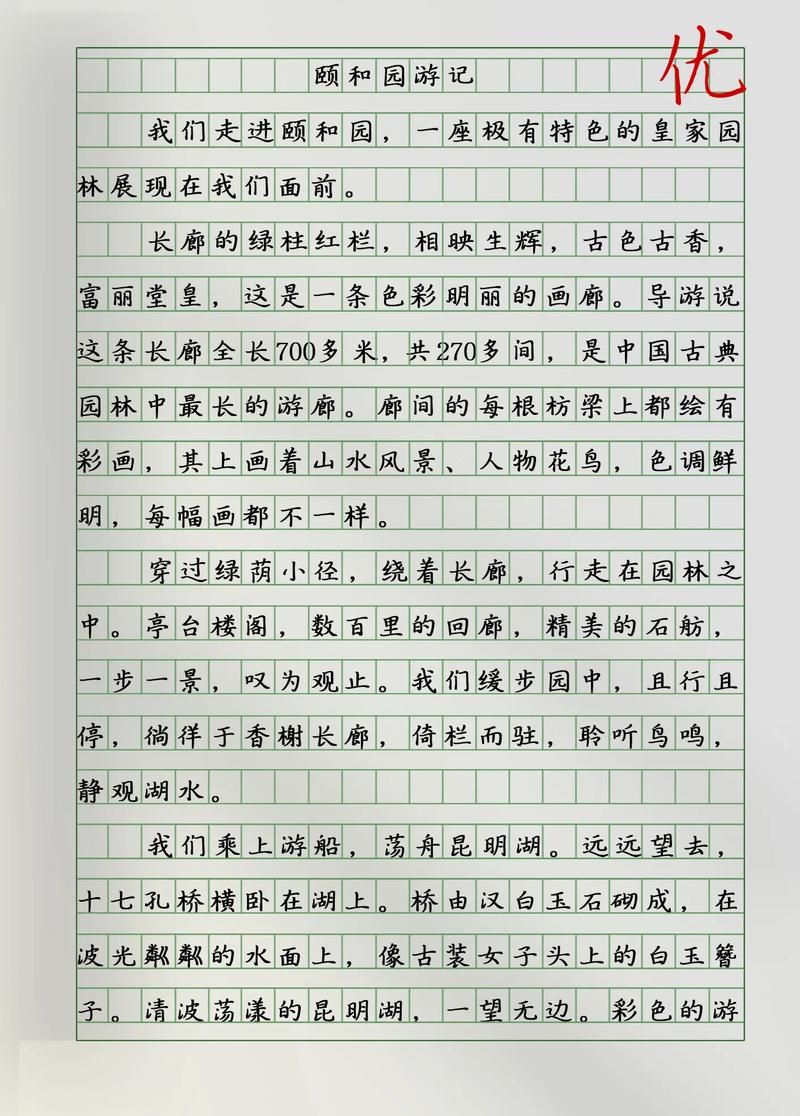 优
颐和园游记
我们走进颐和园，一座极有特色的皇家园
林展现在我们面前。
长廊的绿柱红栏，相映生辉，古色古香，
富丽堂皇，这是一条色彩明丽的画廊。导游说
这条长廊全长700多米，共270多间，是中国古典
园林中最长的游廊。廊间的每根枋梁上都绘有
彩画，其上画着山水风景、人物花鸟，色调鲜
明，每幅画都不一样。
穿过绿荫小径，绕着长廊，行走在园林之
中。亭台楼阁，数百里的回廊，精美的石舫，
一步一景，叹为观止。我们缓步园中，且行且
停，徜徉于香榭长廊，倚栏而驻，聆听鸟鸣，
静观湖水。
我们乘上游船，荡舟昆明湖。远远望去，
十七孔桥横卧在湖上。桥由汉白玉石砌成，在
波光粼粼的水面上，像古装女子头上的白玉簪
子。清波荡漾的昆明湖，一望无边。彩色的游